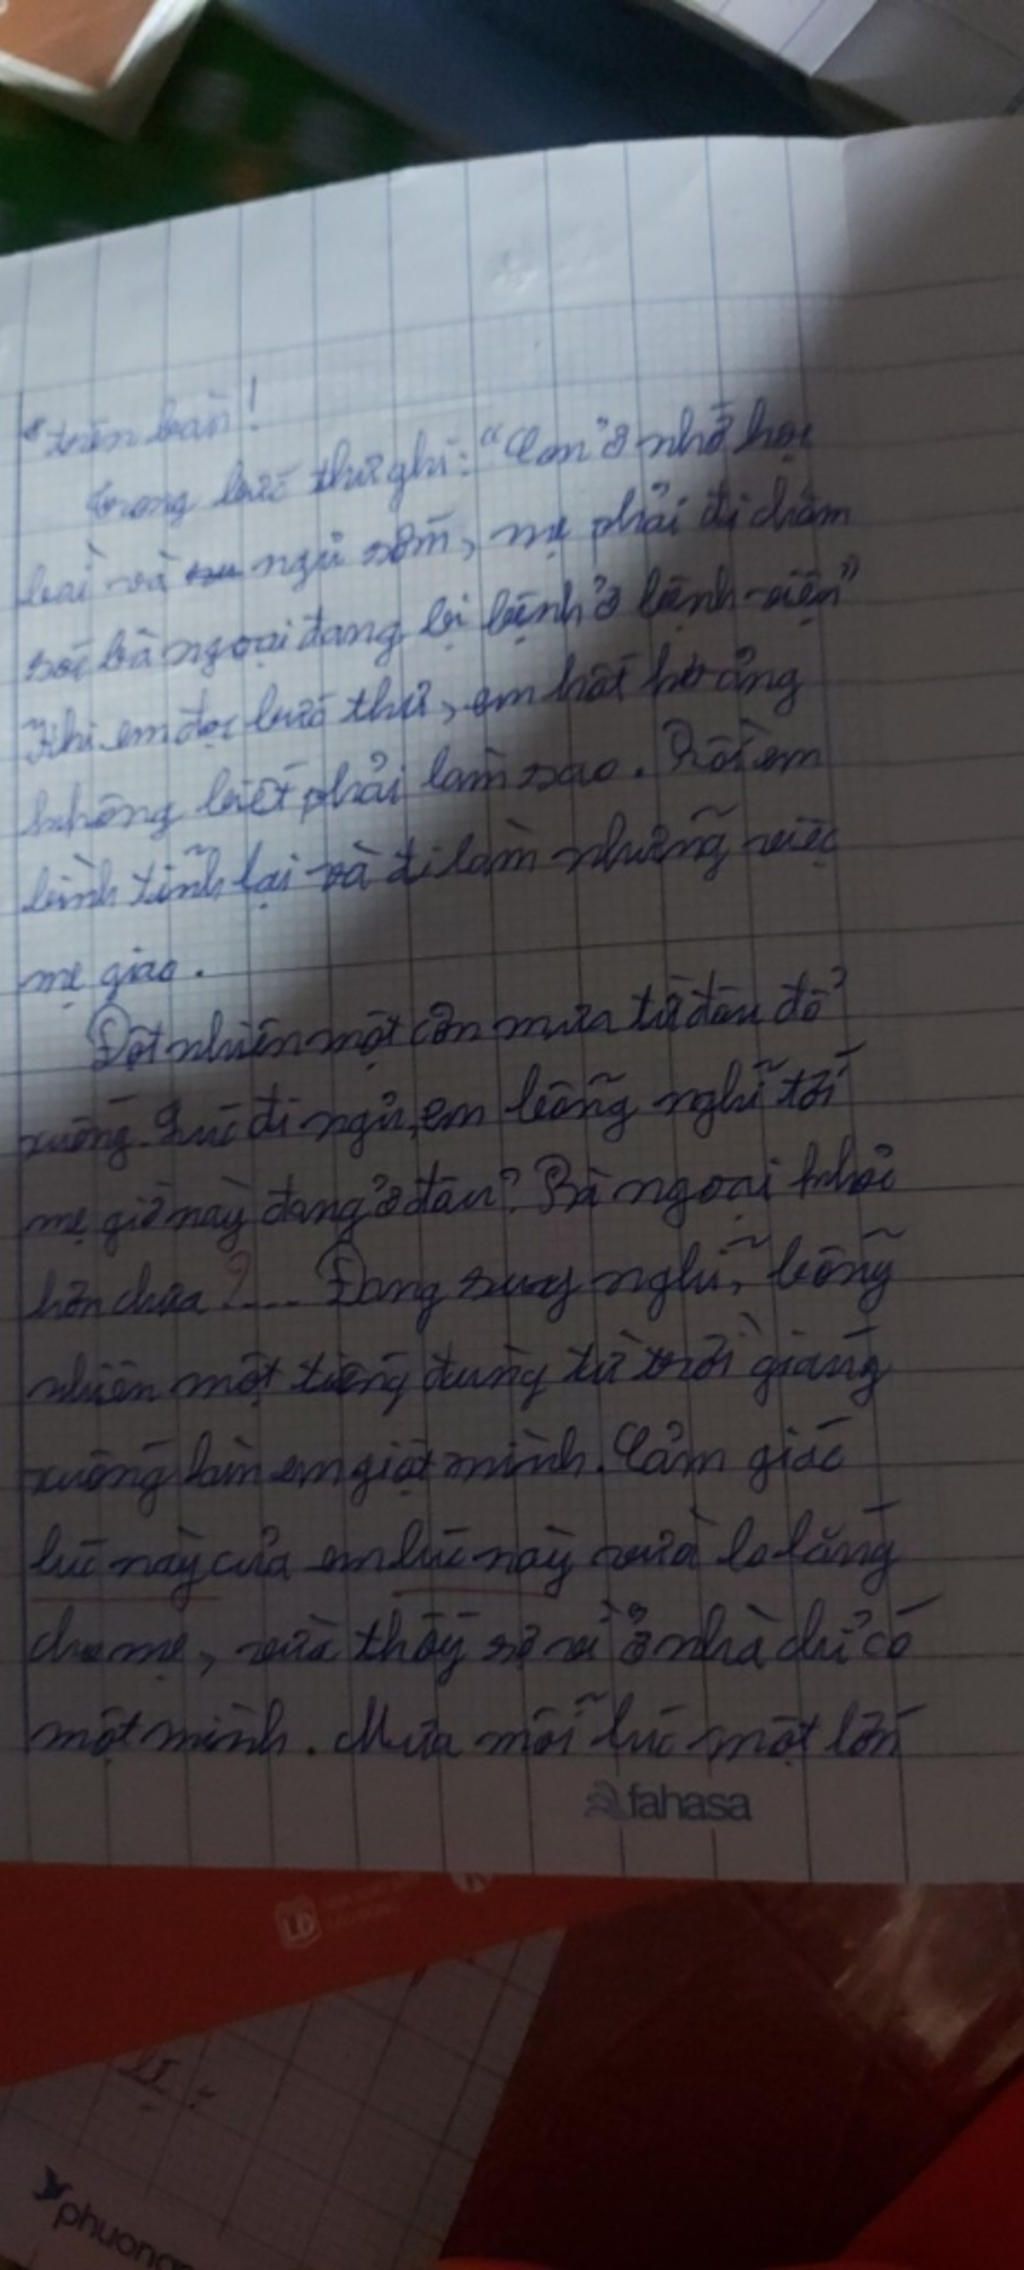 trên bàn!
Trong bức thư ghi: "Con ở nhớ học
bài và ngủ sớm, mẹ phải đi chăm
sóc bà ngoại đang bị bệnh ở bệnh viện"
Khi em đọc bức thư, em hốt hoảng
không biết phải làm sao. Rồi em
bình tĩnh lại và đi làm những việc
mẹ giao.
Đột nhiên một cơn mưa từ đâu đổ
xuống. Lúc đi ngủ, em bỗng nghĩ tới
mẹ giờ này đang ở đâu? Bà ngoại khỏi
hơn chưa?.... Đang suy nghĩ, bỗng
nhiên một tiếng đùng từ trời giáng
xuống làm em giật mình. Cảm giác
lúc này của em lúc này vừa lo lắng
cho mẹ, vừa thấy sợ vì ở nhà chỉ có
một mình. Mưa mỗi lúc một lớn
fahasa
LD
phuong